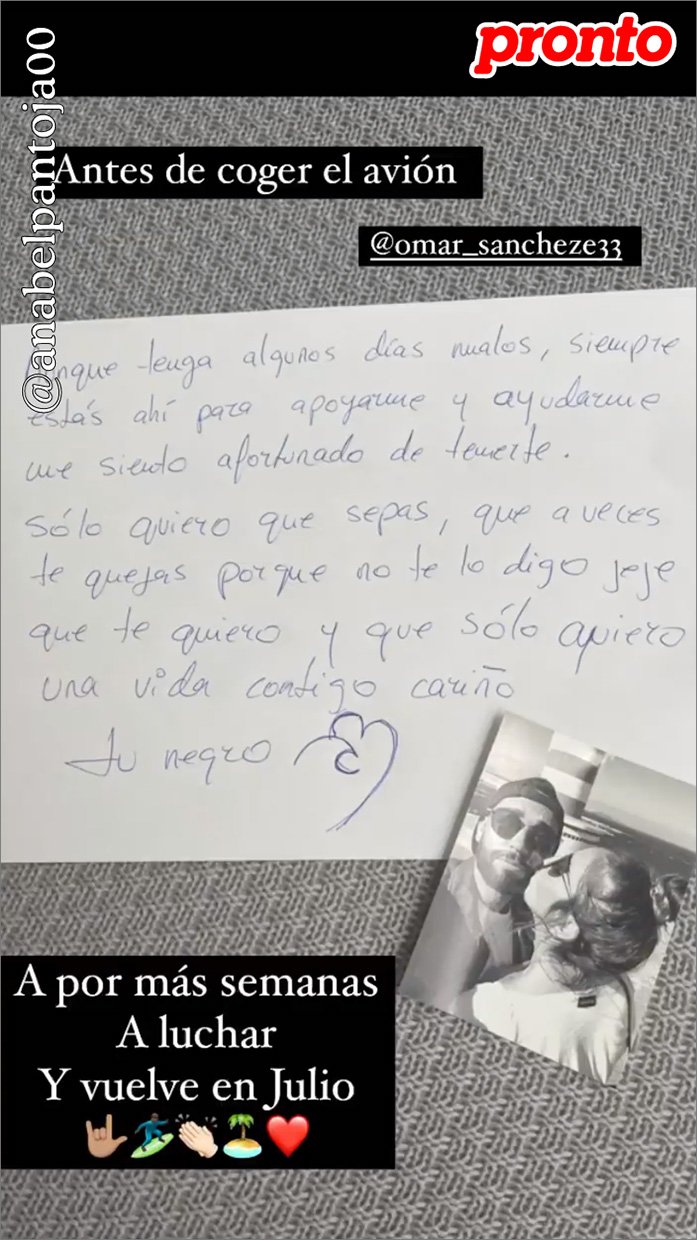 pronto
@anabelpantoja00
Antes de coger el avión
@omar_sancheze33
Aunque tenga algunos días malos, siempre
estás ahí para apoyarme y ayudarme
me siento afortunado de tenerte.
Sólo quiero que sepas, que a veces
te quejas porque no te lo digo jeje
que te quiero y que sólo quiero
una vida contigo cariño
Tu negro
A por más semanas
A luchar
Y vuelve en Julio
🤟🏽🏄🏿‍♂️👏🏻🏝️❤️